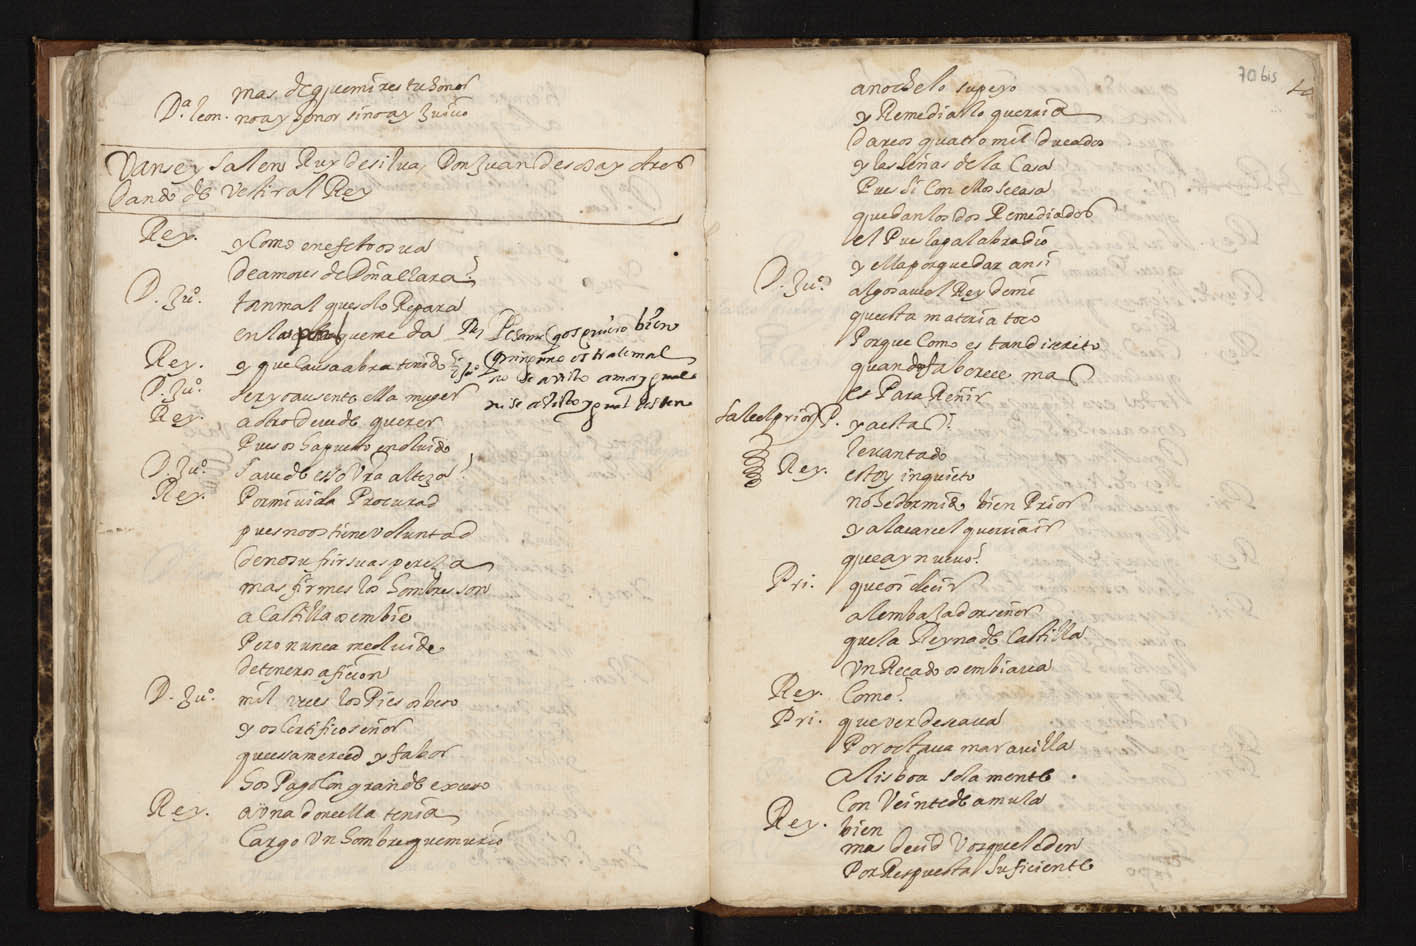 mas de que mires tu honor
D.ª leon. no ay honor si no ay Juicio
Vanse y salen Ruy de silva, Don Juan de sosa y otros
Dando de vestir al Rey
Rey. y como en efeto os va
De amores de Doña clara?
D. Juº. tan mal que solo Repara
en las que me da
Rey. y que causa abra tenido?
D. Juº. ser yo ausente ella muger
Rey. a otro deve de querer
Pues os ha puesto en olvido
D. Juº. save de esso Vra alteza?
Rey. Por mi vida Procurad
pues no os tiene voluntad
de no sufrir suas perezas
mas firmes los hombres son
a Castilla os embie
Pero nunca me olvide
de teneros aficion
D. Juº. mil veces los Pies os beso
y os certifico señor
que esa merced y fabor
los Pago con grande exceso
Rey. a una doncella tenia
Cargo Un hombre que murio
70 bis
anoche lo supe yo
y Remediarlo querria
Dareos quatro mil ducados
y las señas de la Casa
Pues si con ellos se casa
quedan los dos Remediados
el Pues la palabra dio
y ella por quedar ansi
D. Juº. algo save el Rey de mi
que esta materia toco
Porque como es tan discreto
quando faborece mas
es Para Reñir
sale el prior P. ya estas?
levantado
Rey. estoy inquieto
no he dormido bien Prior
y a la carcel querria ir
que ay nuevo?
Pri. que oi decir
al embaxador señor
que la Reyna de Castilla
Un Recado os embiava
Rey. Como?
Pri. que ver deseava
Por octava maravilla
A lisboa sola mente
Con Veinte de a mula
Rey. bien
mas decid Vos que le den
Por Respuesta suficiente